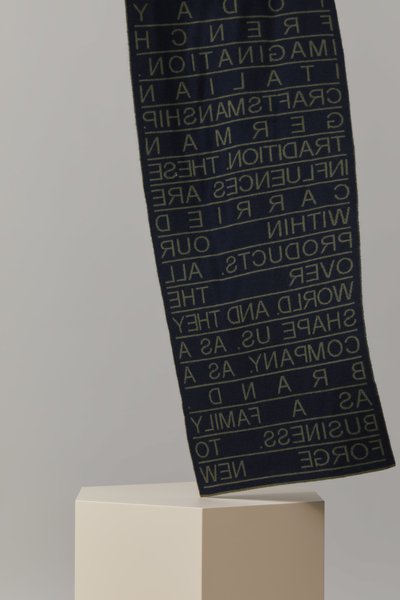 TODAY
FRENCH
IMAGINATION.
ITALIAN
CRAFTSMANSHIP
GERMAN
TRADITION. THESE
INFLUENCES ARE
CARRIED
WITHIN OUR
PRODUCTS. ALL
OVER THE
WORLD. AND THEY
SHAPE US. AS A
COMPANY. AS A
BRAND
AS A FAMILY
BUSINESS. TO
FORGE NEW